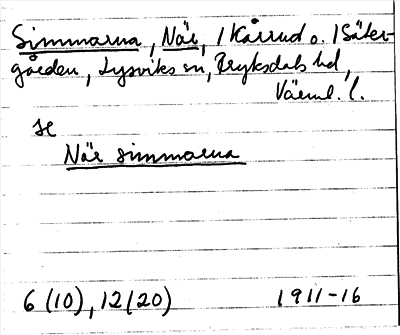 Simmarna, När, i Kårrud o. i Säter-
gården, Lysviks sn, Fryksdals hd,
Värml. l.
se
När simmarna
6 (10), 12 (20) 1911-16